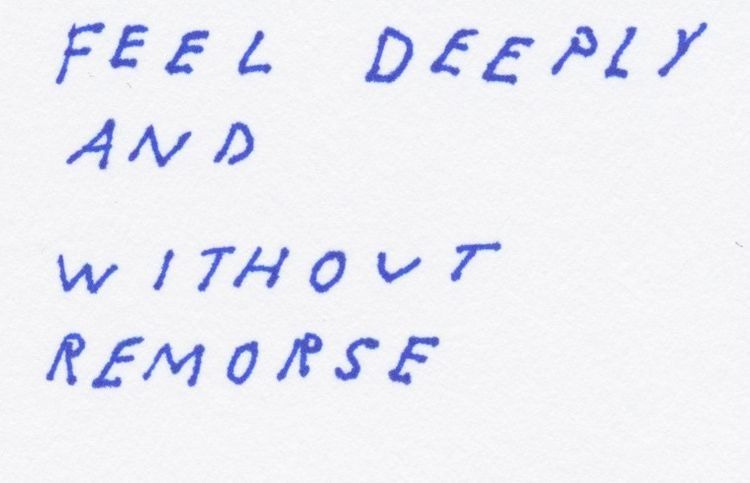 FEEL DEEPLY
AND
WITHOUT
REMORSE